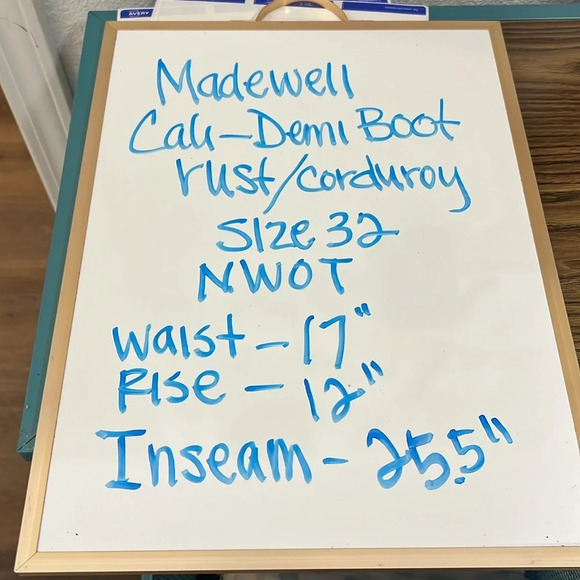 AVERY
Madewell
Cali-Demi Boot
rust/corduroy
Size 32
NWOT
Waist - 17"
Rise - 12"
Inseam - 25.5"